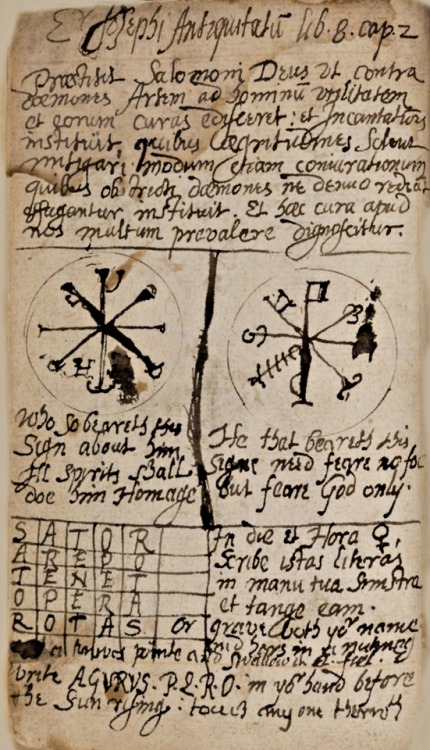 Ex Josephi Antiquitatū lib. 8. cap. 2
Præstitit Salomoni Deus ut contra
dæmones Artem ad hominū utilitatem
et eorum curas edisceret: et Incantationes
instituit, quibus Ægritudines solent
mitigari: modum etiam coniurationum
quibus obstricti dæmones ne denuo redeāt
effugantur, instituit. Et hæc cura apud
nos multum prevalere dignoscitur.
Who so beareth this
Sign about him
All spirits shall
doe him Homage
He that beareth this
Signe need feare no foe
But feare God only.
S A T O R
A R E P O
T E N E T
O P E R A
R O T A S or
In die et Hora ♀,
Scribe istas literas
in manu tua sinistra
et tange eam.
grave both yor name
write AGVRVS. P.L.R.O. in yor hand before
the Sun rising. touch any one therwth